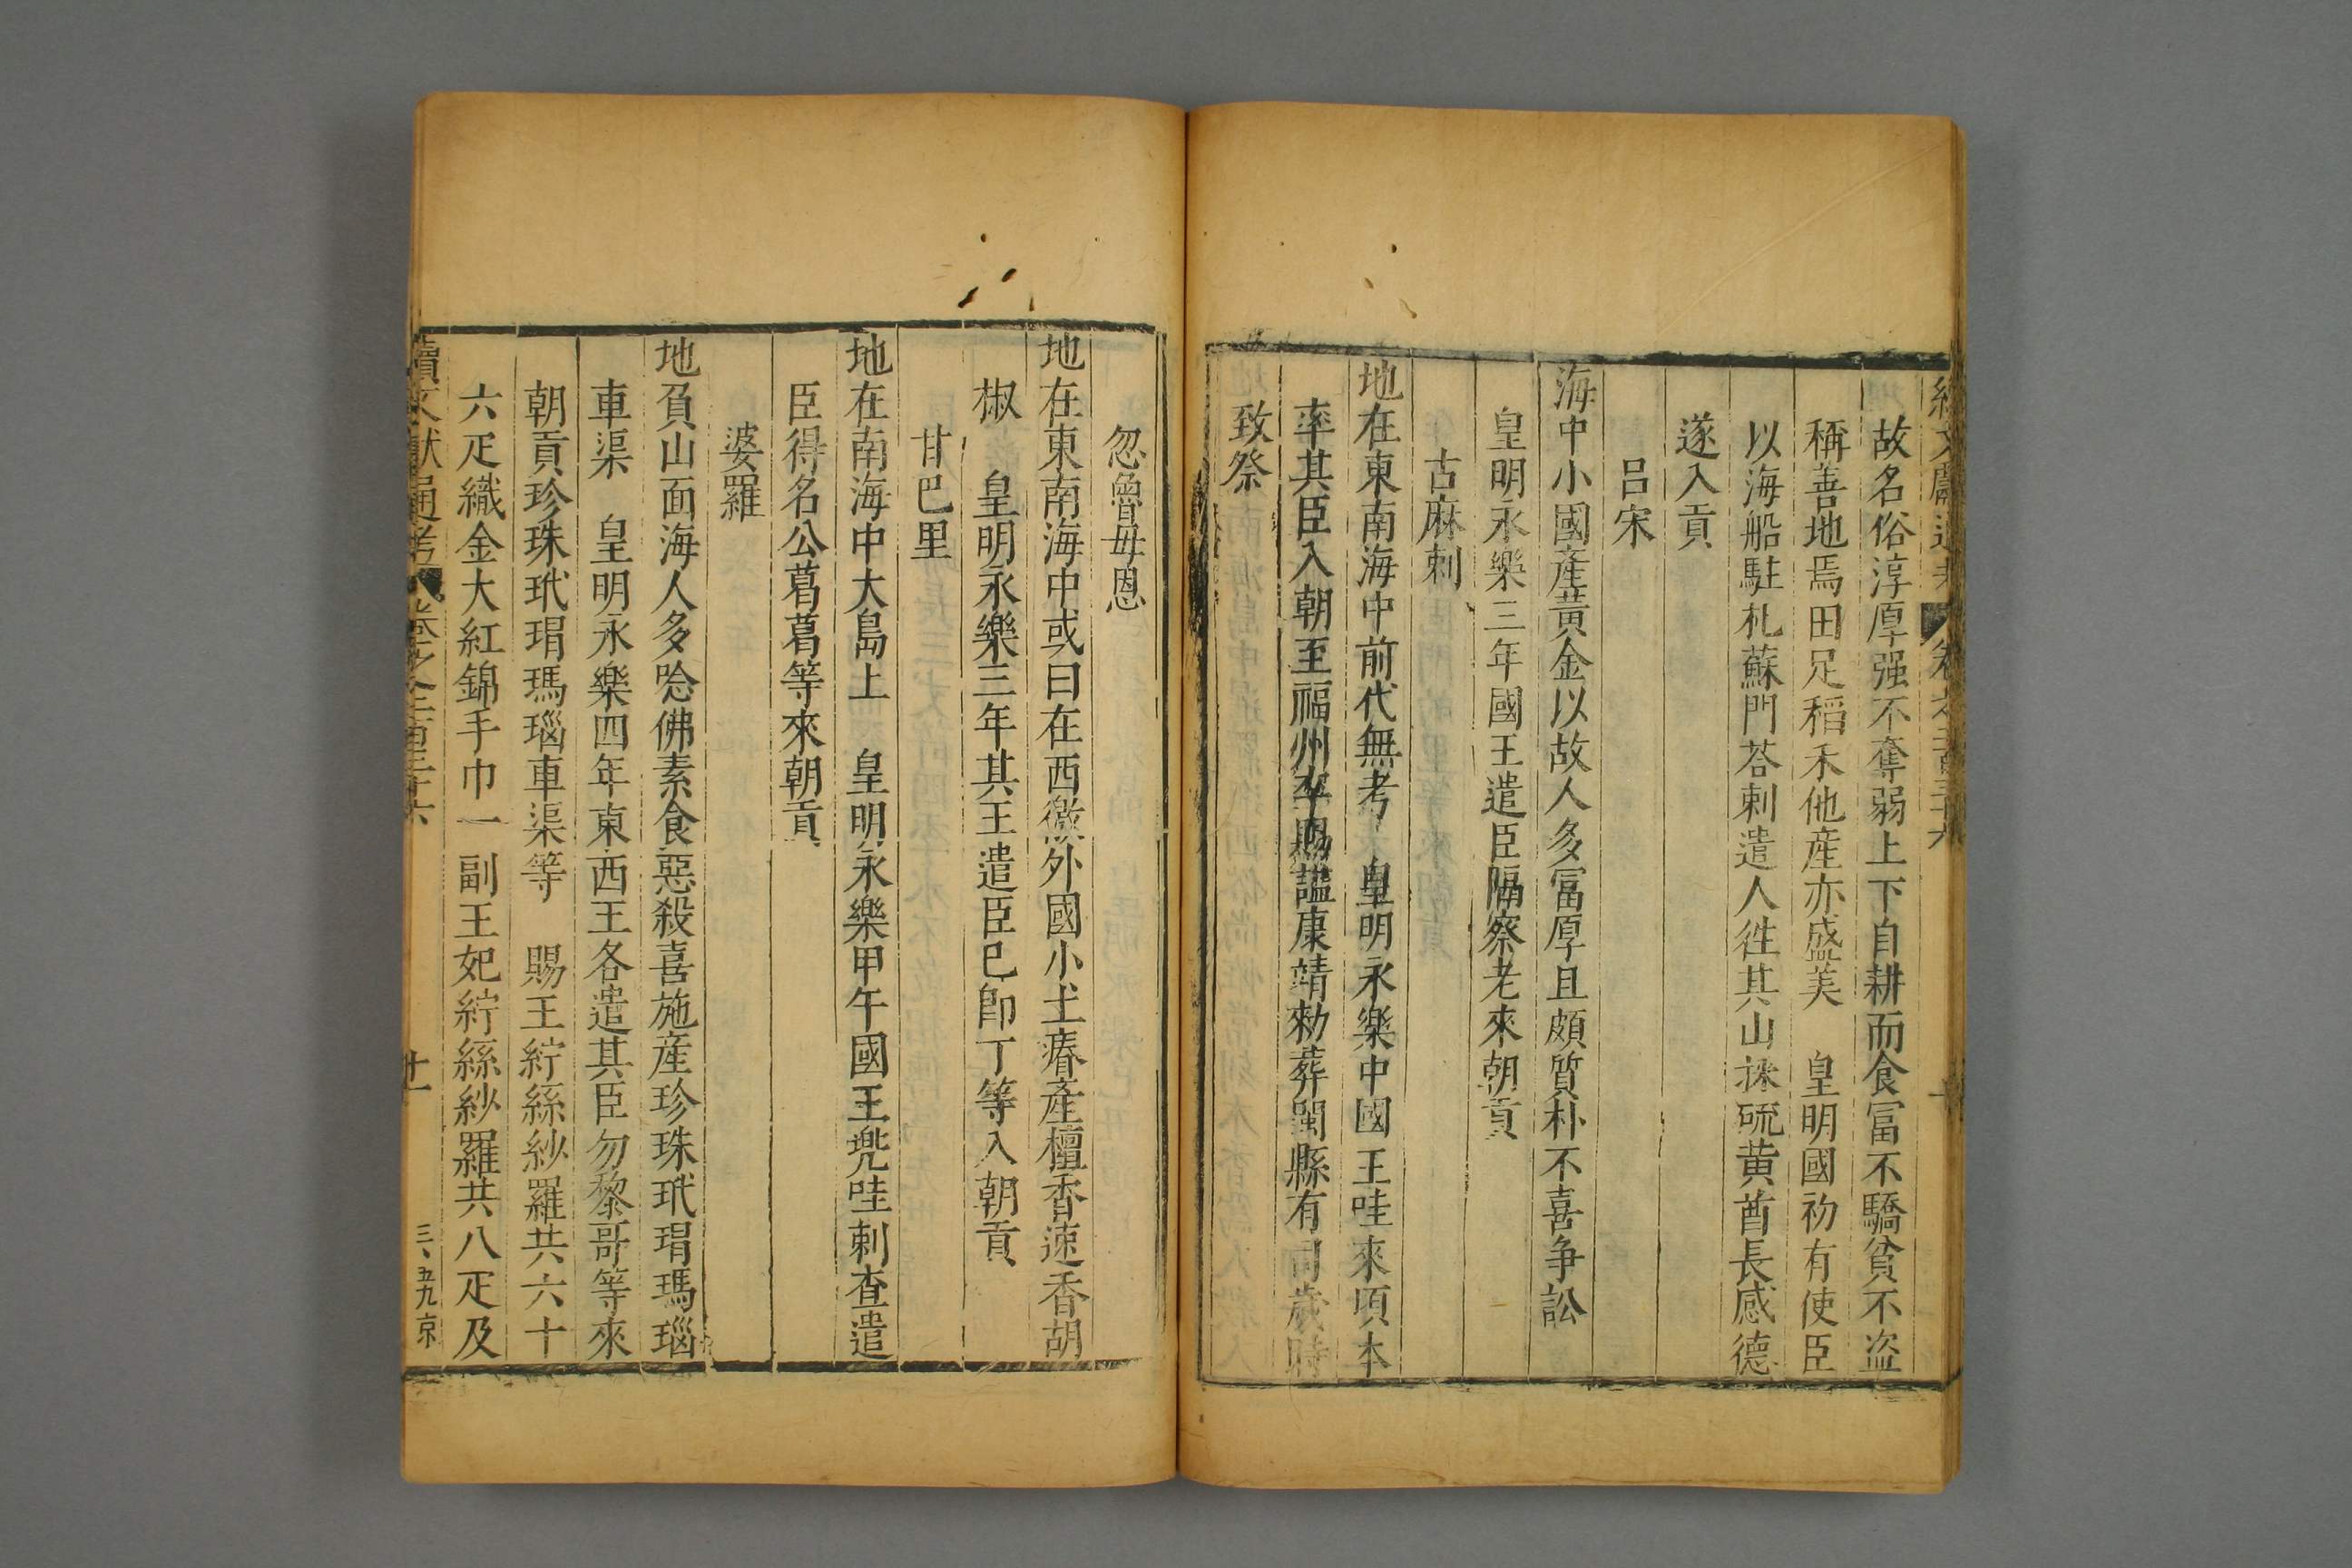 故名俗淳厚强不奪弱上下自耕而食冨不驕貧不盗
稱善地焉田足稻禾他産亦盛美　皇明國初有使臣
以海船駐札蘇門荅剌遣人徃其山採硫黄酋長感德
遂入貢
吕宋
海中小國產黄金以故人多冨厚且頗質朴不喜争訟
皇明永樂三年國王遣臣隔察老來朝貢
古麻剌
地在東南海中前代無考　皇明永樂中國王哇來頃本
率其臣入朝至福州卒賜謚康靖勑葬閩縣有司歲時
致祭
忽魯毋恩
地在東南海中或曰在西徼外國小土瘠產檀香速香胡
椒　皇明永樂三年其王遣臣已即丁等入朝貢
甘巴里
地在南海中大島上　皇明永樂甲午國王兠哇剌查遣
臣得名公葛葛等來朝貢
婆羅
地負山面海人多唸佛素食惡殺喜施産珍珠玳瑁瑪瑙
車渠　皇明永樂四年東西王各遣其臣勿黎哥等來
朝貢珍珠玳瑁瑪瑙車渠等　賜王紵絲紗羅共六十
六疋織金大紅錦手巾一副王妃紵絲紗羅共八疋及
續文獻通考　卷之二百三十六　廿一　三、五九京